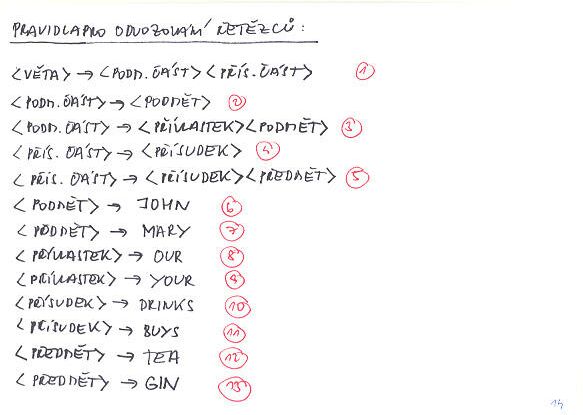 PRAVIDLA PRO ODVOZOVÁNÍ ŘETĚZCŮ:
<VĚTA> → <PODM. ČÁST><PŘÍS. ČÁST> 1
<PODM. ČÁST> → <PODMĚT> 2
<PODM. ČÁST> → <PŘÍVLASTEK><PODMĚT> 3
<PŘÍS. ČÁST> → <PŘÍSUDEK> 4
<PŘÍS. ČÁST> → <PŘÍSUDEK><PŘEDMĚT> 5
<PODMĚT> → JOHN 6
<PODMĚT> → MARY 7
<PŘÍVLASTEK> → OUR 8
<PŘÍVLASTEK> → YOUR 9
<PŘÍSUDEK> → DRINKS 10
<PŘÍSUDEK> → BUYS 11
<PŘEDMĚT> → TEA 12
<PŘEDMĚT> → GIN 13
14